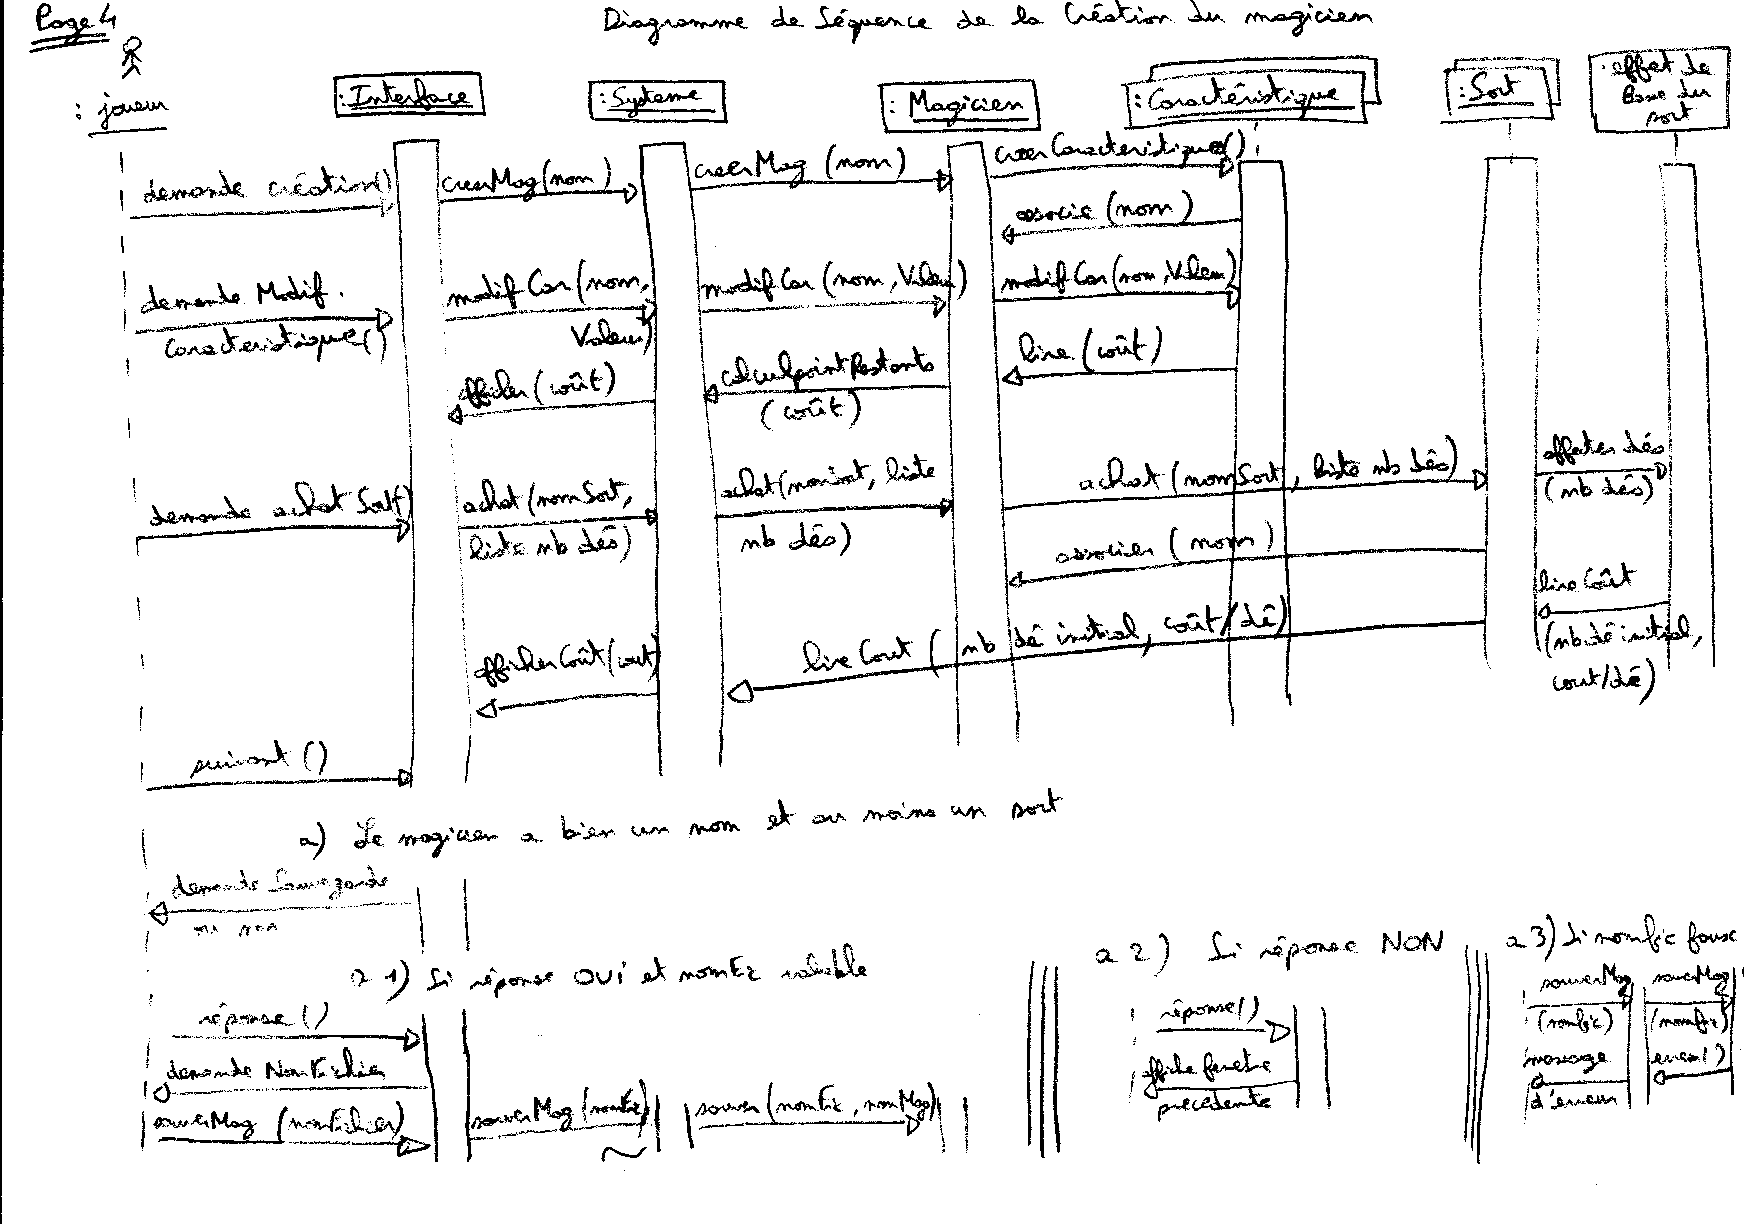 Page 4
Diagramme de Séquence de la Création du magicien
: joueur
: Interface
: Systeme
: Magicien
: Caractéristique
: Sort
: effet de
Base du
sort
demande création()
creerMag(nom)
creerMag (nom)
creerCaracteristiques()
associe (nom)
demande Modif.
Caracteristique()
modifCar(nom,
Valeur)
modifCar (nom, Valeur)
modifCar(nom, Valeur)
lire (coût)
calculpointRestants
(coût)
afficher (coût)
demande achat Sort()
achat(nomSort,
liste nb dés)
achat(nomsort, liste
nb dés)
achat (nomSort, liste nb dés)
affecter dés
(nb dés)
associer (nom)
lire Coût
(nb dé initial,
cout/dé)
lire Cout (nb dé initial, coût/dé)
afficherCoût(cout)
suivant ()
a) Le magicien a bien un nom et au moins un sort
demande Sauvegarde
a 1) Si réponse OUI et nomFic valable
réponse ()
demande NomFichier
sauverMag (nomFichier)
sauverMag (nomFic)
sauver (nomFic, nomMag)
a 2) Si réponse NON
réponse()
affiche fenetre
precedente
a 3) Si nomfic fausse
sauverMag
(nomfic)
sauverMag
(nomfic)
message
d'erreur
erreur()